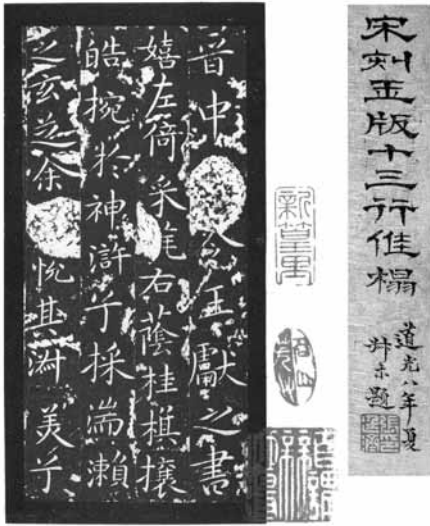 宋刻玉版十三行佳搨
道光八年夏
叔未題
晋中令王獻之書
嬉左倚采旄右蔭桂旗攘
皓捥於神滸兮採湍瀨
之玄芝余悅其淑美兮
新篁里